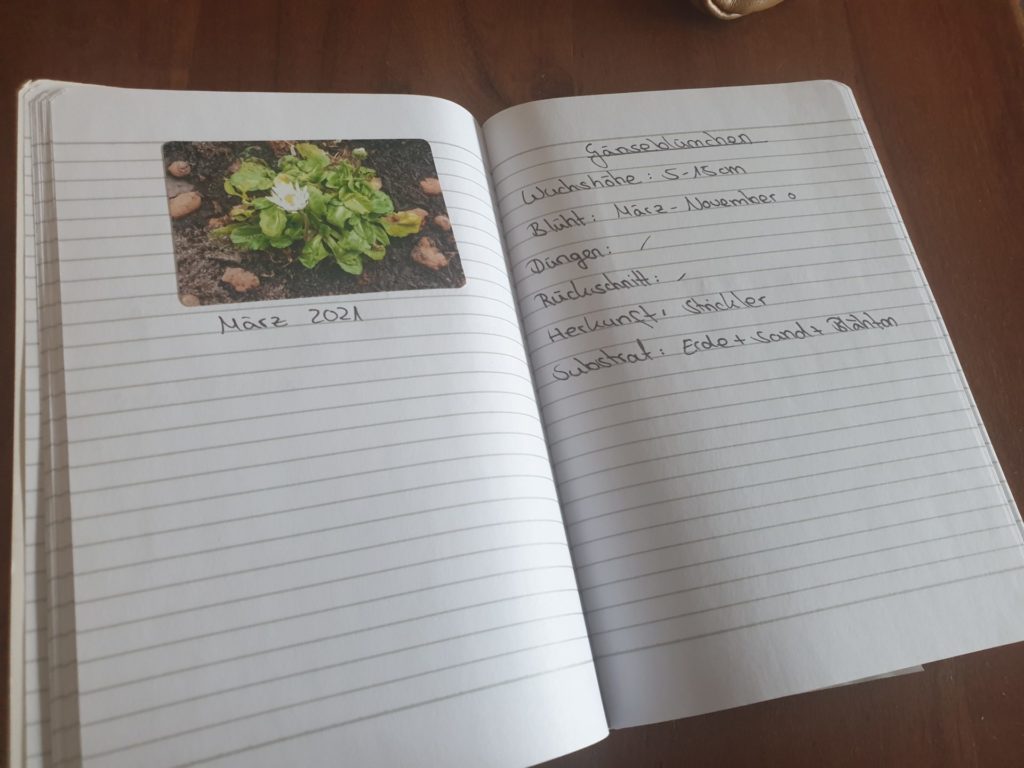 März 2021
Gänseblümchen
Wuchshöhe: 5-15cm
Blüht: März - November o
Düngen: /
Rückschnitt: /
Herkunft: Strickler
Substrat: Erde + Sand + Blähton